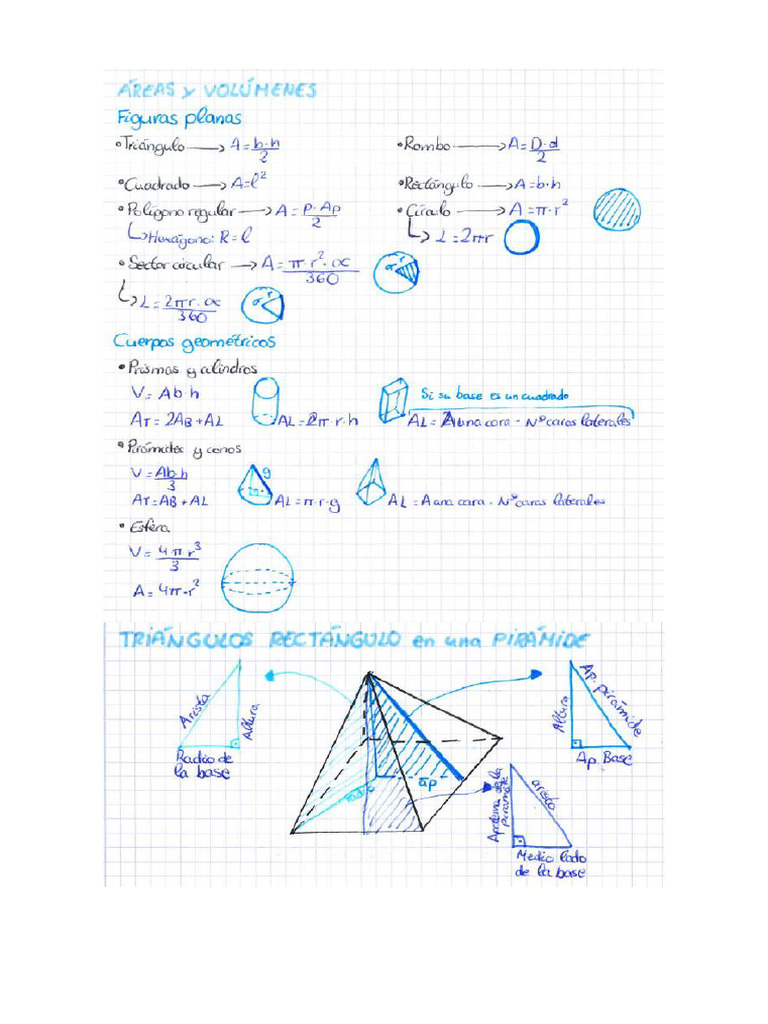 ÁREAS y VOLÚMENES
Figuras planas
• Triángulo → A = b·h / 2
• Rombo → A = D·d / 2
• Cuadrado → A = l²
• Rectángulo → A = b·h
• Polígono regular → A = P·Ap / 2
• Círculo → A = π·r²
↳ Hexágono: R = l
↳ L = 2πr
• Sector circular → A = π·r²·α / 360
α r
↳ L = 2πr·α / 360
α r
Cuerpos geométricos
• Prismas y cilindros
V = Ab·h
Si su base es un cuadrado
AT = 2AB + AL
AL = 2π·r·h
AL = A una cara · Nº caras laterales
• Pirámides y conos
V = Ab·h / 3
g
AT = AB + AL
AL = π·r·g
AL = A una cara · Nº caras laterales
• Esfera
V = 4πr³ / 3
A = 4π·r²
TRIÁNGULOS RECTÁNGULO en una PIRÁMIDE
Arista
Altura
Radio de
la base
Altura
Ap. pirámide
Ap. Base
radio
ap
Apotema de la
pirámide
arista
Medio lado
de la base